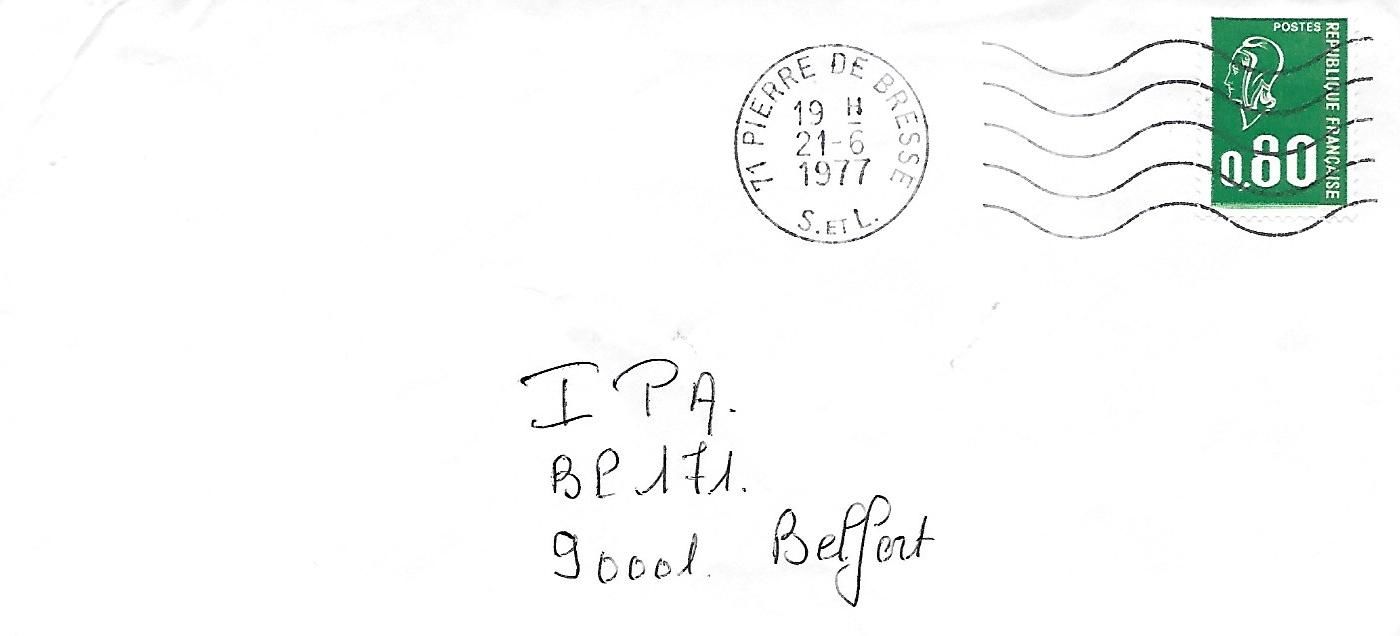 71 PIERRE DE BRESSE
19 H
21-6
1977
S. ET L.
POSTES
REPUBLIQUE FRANÇAISE
0,80
I P A.
BP 171.
90001. Belfort